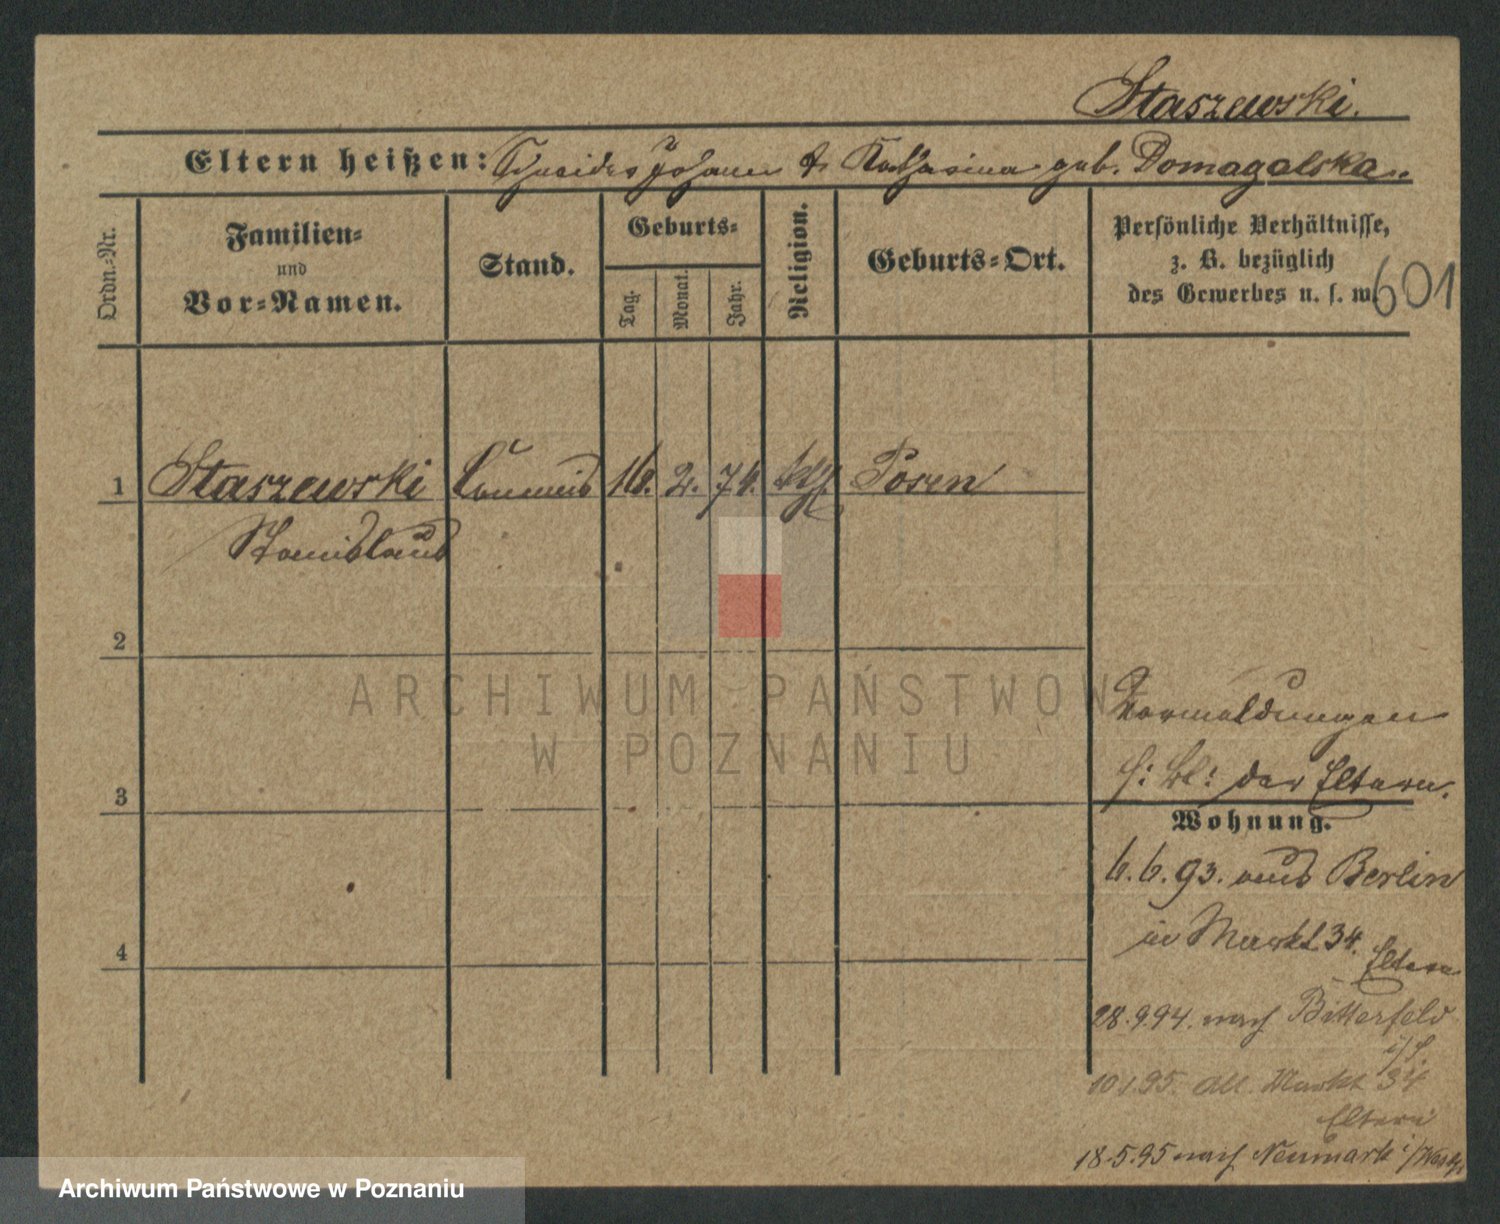 Staszewski.
Eltern heißen: Schneider Johann & Katharina geb. Domagalska.
Ordn.-Nr.
Familien-
und
Vor-Namen.
Stand.
Geburts-
Tag.
Monat.
Jahr.
Religion.
Geburts-Ort.
Persönliche Verhältnisse,
z. B. bezüglich
des Gewerbes u. s. w.
601
1 Staszewski Commis 16. 2. 74. kath. Posen
Stanislaus
2
ARCHIWUM PAŃSTWOWE
W POZNANIU
Vormeldungen
s: Bl: der Eltern.
3
Wohnung.
6.6.93. aus Berlin
in Markt 34.
Eltern
4
28.9.94. nach Bitterfeld
i/S.
10.1.95. All. Markt 34
Eltern
18.5.95 nach Neumark i/Westpr
Archiwum Państwowe w Poznaniu